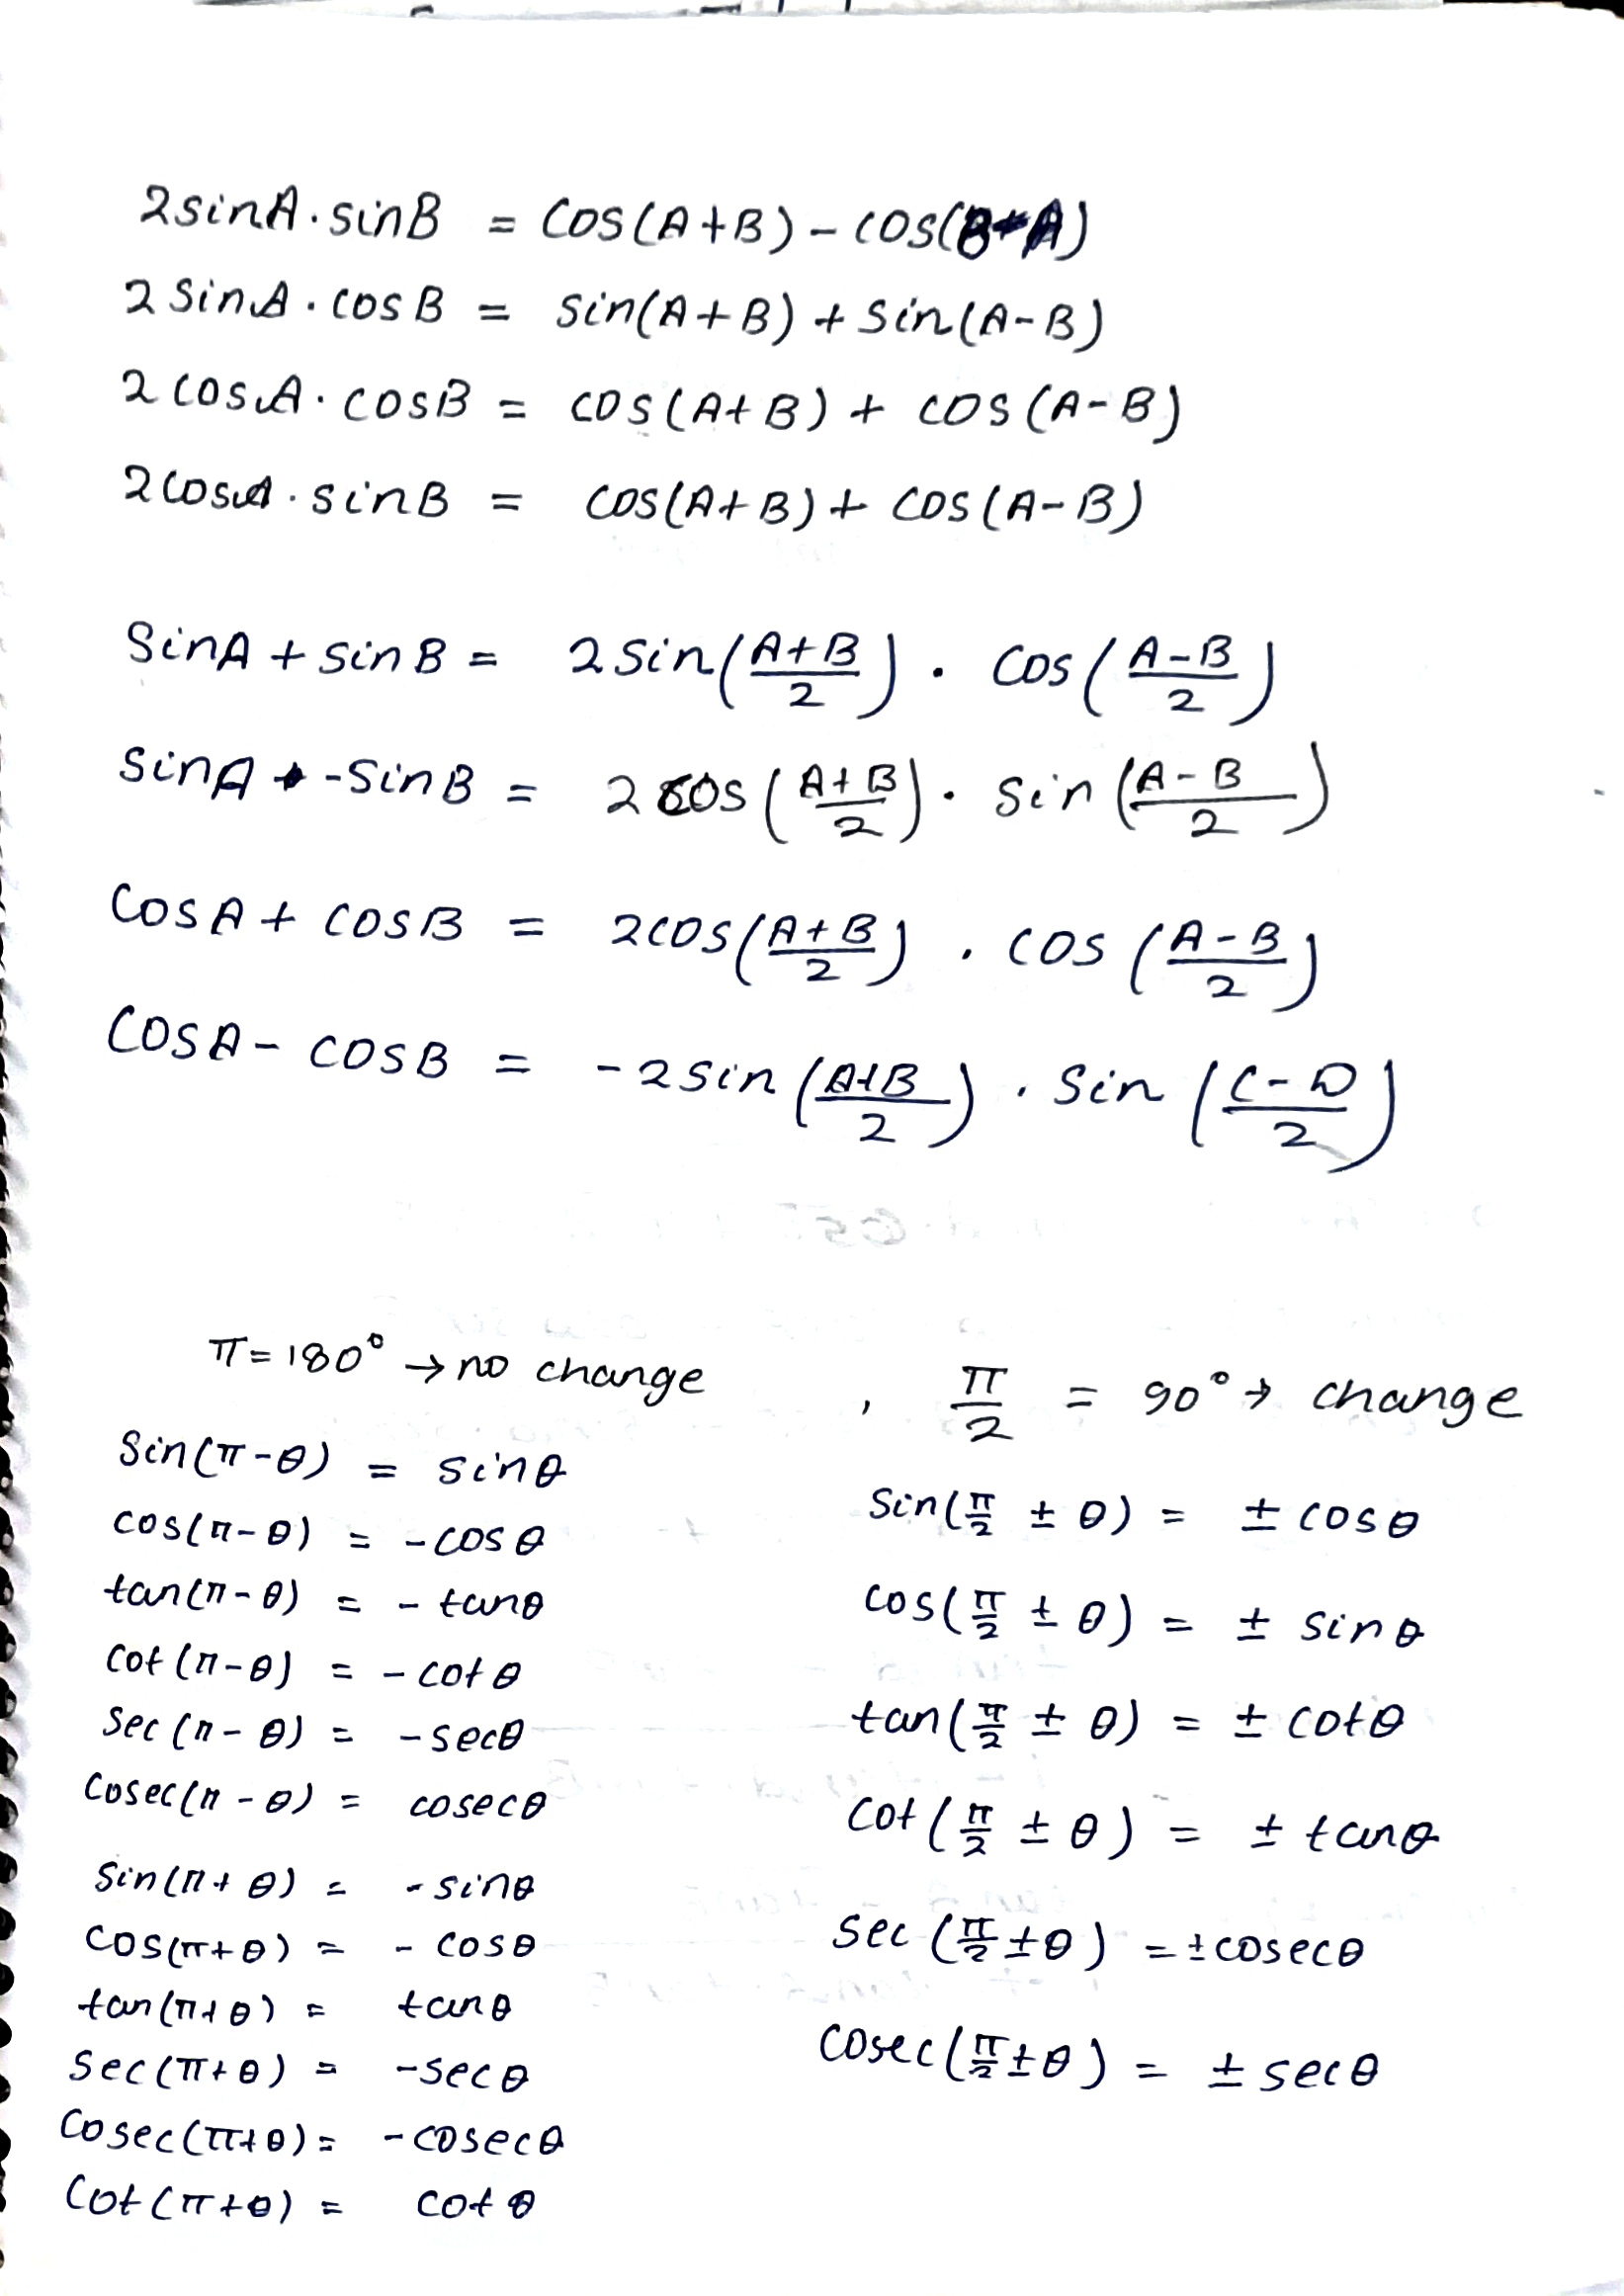 2sinA.sinB = cos(A+B) - cos(
2sinA.cosB = sin(A+B) + sin(A-B)
2cosA.cosB = cos(A+B) + cos(A-B)
2cosA.sinB = cos(A+B) + cos(A-B)
sinA + sinB = 2sin((A+B)/2) . cos((A-B)/2)
sinA -sinB = 2cos((A+B)/2) . sin((A-B)/2)
cosA + cosB = 2cos((A+B)/2) . cos((A-B)/2)
cosA - cosB = -2sin((A+B)/2) . sin((C-D)/2)
π=180° → no change , π/2 = 90° → change
sin(π-θ) = sinθ
cos(π-θ) = -cosθ
tan(π-θ) = -tanθ
cot(π-θ) = -cotθ
sec(π-θ) = -secθ
cosec(π-θ) = cosecθ
sin(π+θ) = -sinθ
cos(π+θ) = -cosθ
tan(π+θ) = tanθ
sec(π+θ) = -secθ
cosec(π+θ) = -cosecθ
cot(π+θ) = cotθ
sin(π/2 ± θ) = ± cosθ
cos(π/2 ± θ) = ± sinθ
tan(π/2 ± θ) = ± cotθ
cot(π/2 ± θ) = ± tanθ
sec(π/2 ± θ) = ± cosecθ
cosec(π/2 ± θ) = ± secθ